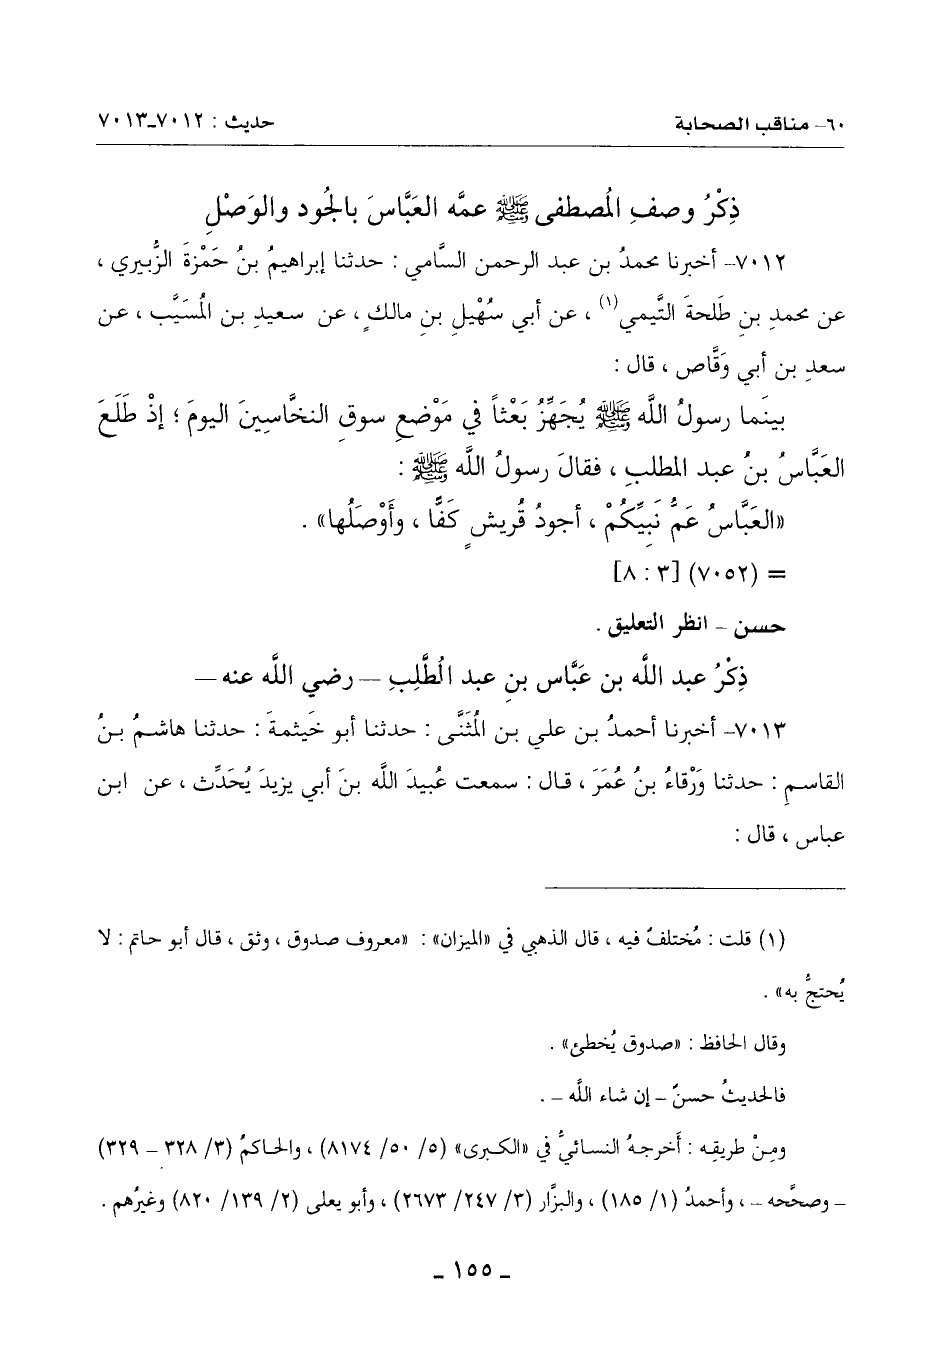 ٦٠- مناقب الصحابة
حديث : ٧٠١٢-٧٠١٣
ذِكْرُ وصفِ المُصطفى ﷺ عمَّه العَبَّاسَ بالجُود والوَصْلِ
٧٠١٢- أخبرنا محمدُ بن عبد الرحمن السَّامي : حدثنا إبراهيمُ بنُ حَمْزةَ الزُّبيري ،
عن محمدِ بنِ طَلحةَ التَّيمي(١) ، عن أبي سُهَيْلِ بنِ مالكٍ ، عن سعيدِ بن المُسَيَّب ، عن
سعدِ بن أبي وَقَّاص ، قال :
بينَما رسولُ اللَّه ﷺ يُجَهِّزُ بَعْثاً في مَوْضعِ سوقِ النخَّاسينَ اليومَ ؛ إذْ طَلَعَ
العَبَّاسُ بنُ عبد المطلبِ ، فقالَ رسولُ اللَّه ﷺ :
«العَبَّاسُ عَمُّ نَبِيِّكُمْ ، أجودُ قُريشٍ كَفًّا ، وأَوْصَلُها» .
= (٧٠٥٢) [٣ : ٨]
حسن - انظر التعليق .
ذِكْرُ عبد اللَّه بن عَبَّاس بنِ عبد المُطَّلِبِ — رضي اللَّه عنه —
٧٠١٣- أخبرنا أحمدُ بن علي بن المُثَنَّى : حدثنا أبو خَيثمةَ : حدثنا هاشمُ بنُ
القاسمِ : حدثنا وَرْقاءُ بنُ عُمَرَ ، قال : سمعت عُبيدَ اللَّه بنَ أبي يزيدَ يُحَدِّث ، عن ابن
عباس ، قال :
(١) قلت : مُختلفٌ فيه ، قال الذهبي في «الميزان» : «معروف صدوق ، وثق ، قال أبو حاتم : لا
يُحتجُّ به» .
وقال الحافظ : «صدوق يُخطئ» .
فالحديثُ حسنٌ - إن شاء اللَّه - .
ومِنْ طريقِه : أَخرجهُ النسائيُّ في «الكبرى» (٥/ ٥٠/ ٨١٧٤) ، والحاكمُ (٣/ ٣٢٨ - ٣٢٩)
- وصحَّحه - ، وأحمدُ (١/ ١٨٥) ، والبزَّار (٣/ ٢٤٧/ ٢٦٧٣) ، وأبو يعلى (٢/ ١٣٩/ ٨٢٠) وغيرُهم .
- ١٥٥ -